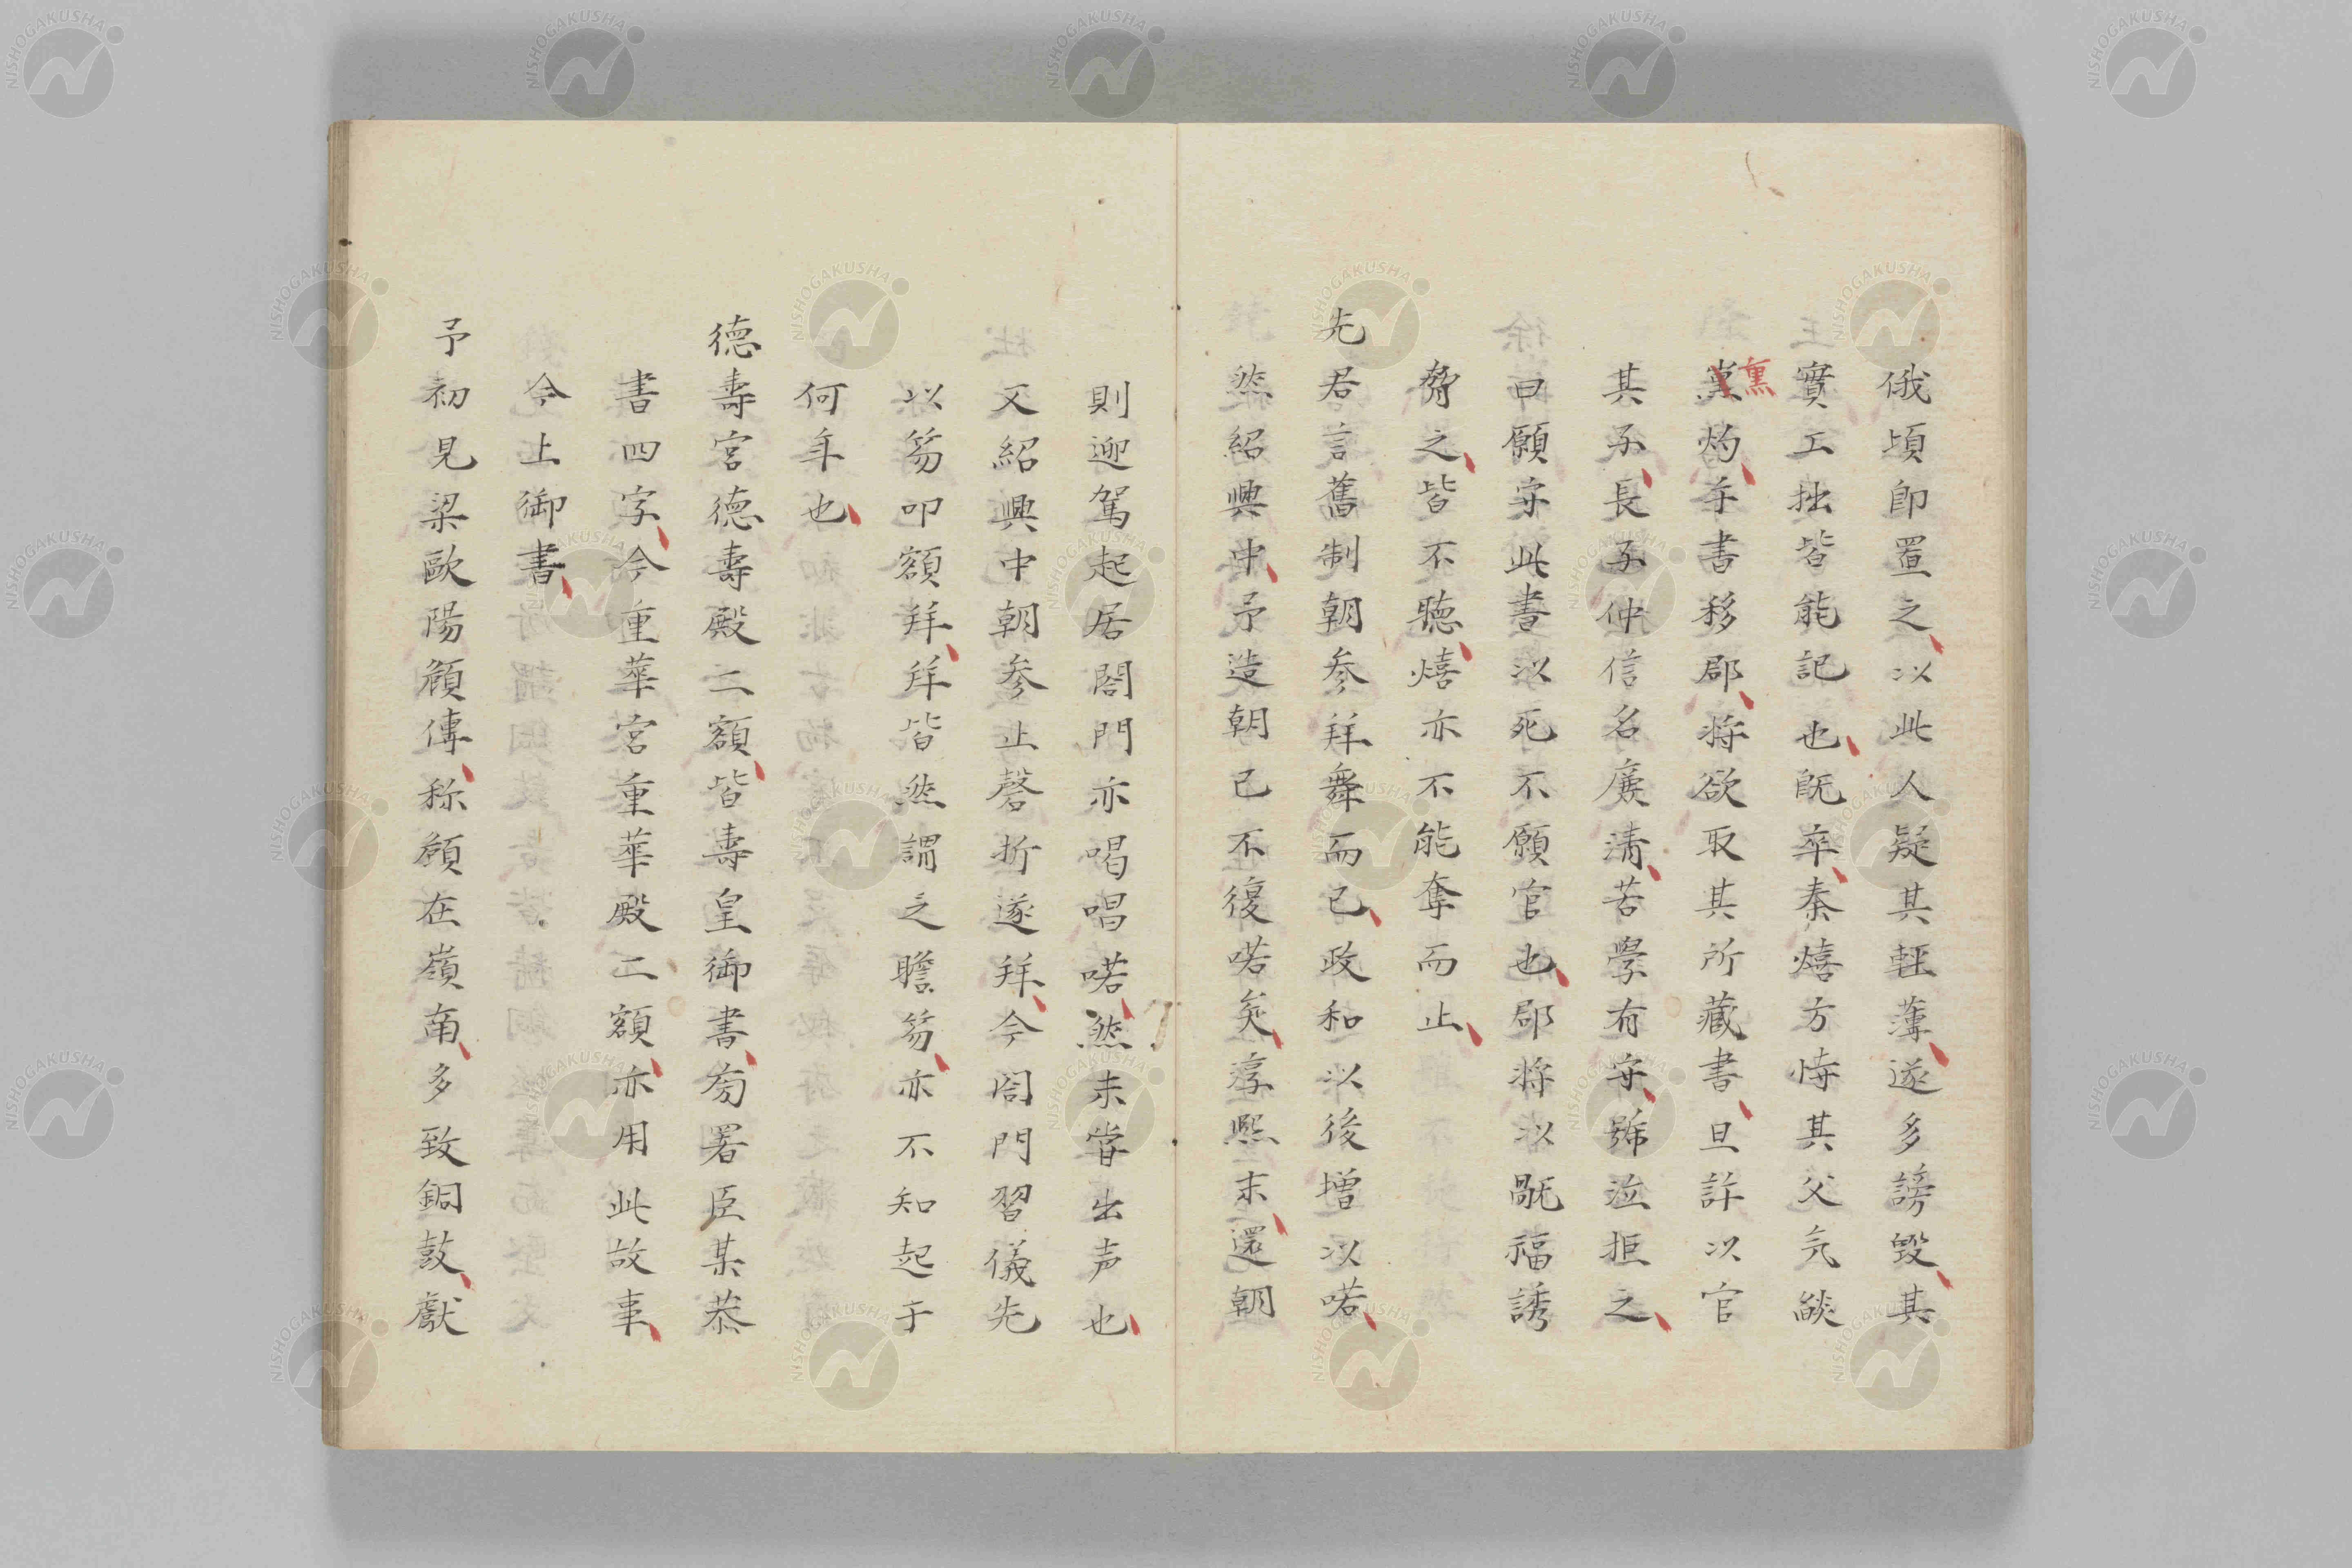 俄頃即置之以此人疑其輕薄遂多謗毀其
實工拙皆能記也既卒秦熺方恃其父気燄
熏灼手書移郡将欲取其所藏書且許以官
其子長子仲信名廉清苦學有守號泣拒之
曰願守此書以死不願官也郡将以禍福誘
脅之皆不聽熺亦不能奪而止
先君言舊制朝参拜舞而已政和以後増以喏
然紹興中予造朝已不復喏矣淳熙末還朝
則迎駕起居閤門亦喝唱喏然未嘗出声也
又紹興中朝参止磬折遂拜今閤門習儀先
以笏叩額拜拜皆然謂之瞻笏亦不知起于
何年也
德壽宮德壽殿二額皆壽皇御書旁署臣某恭
書四字今重華宮重華殿二額亦用此故事
今上御書
予初見梁歐陽頠傳称頠在嶺南多致銅鼓獻
NISHOGAKUSHA